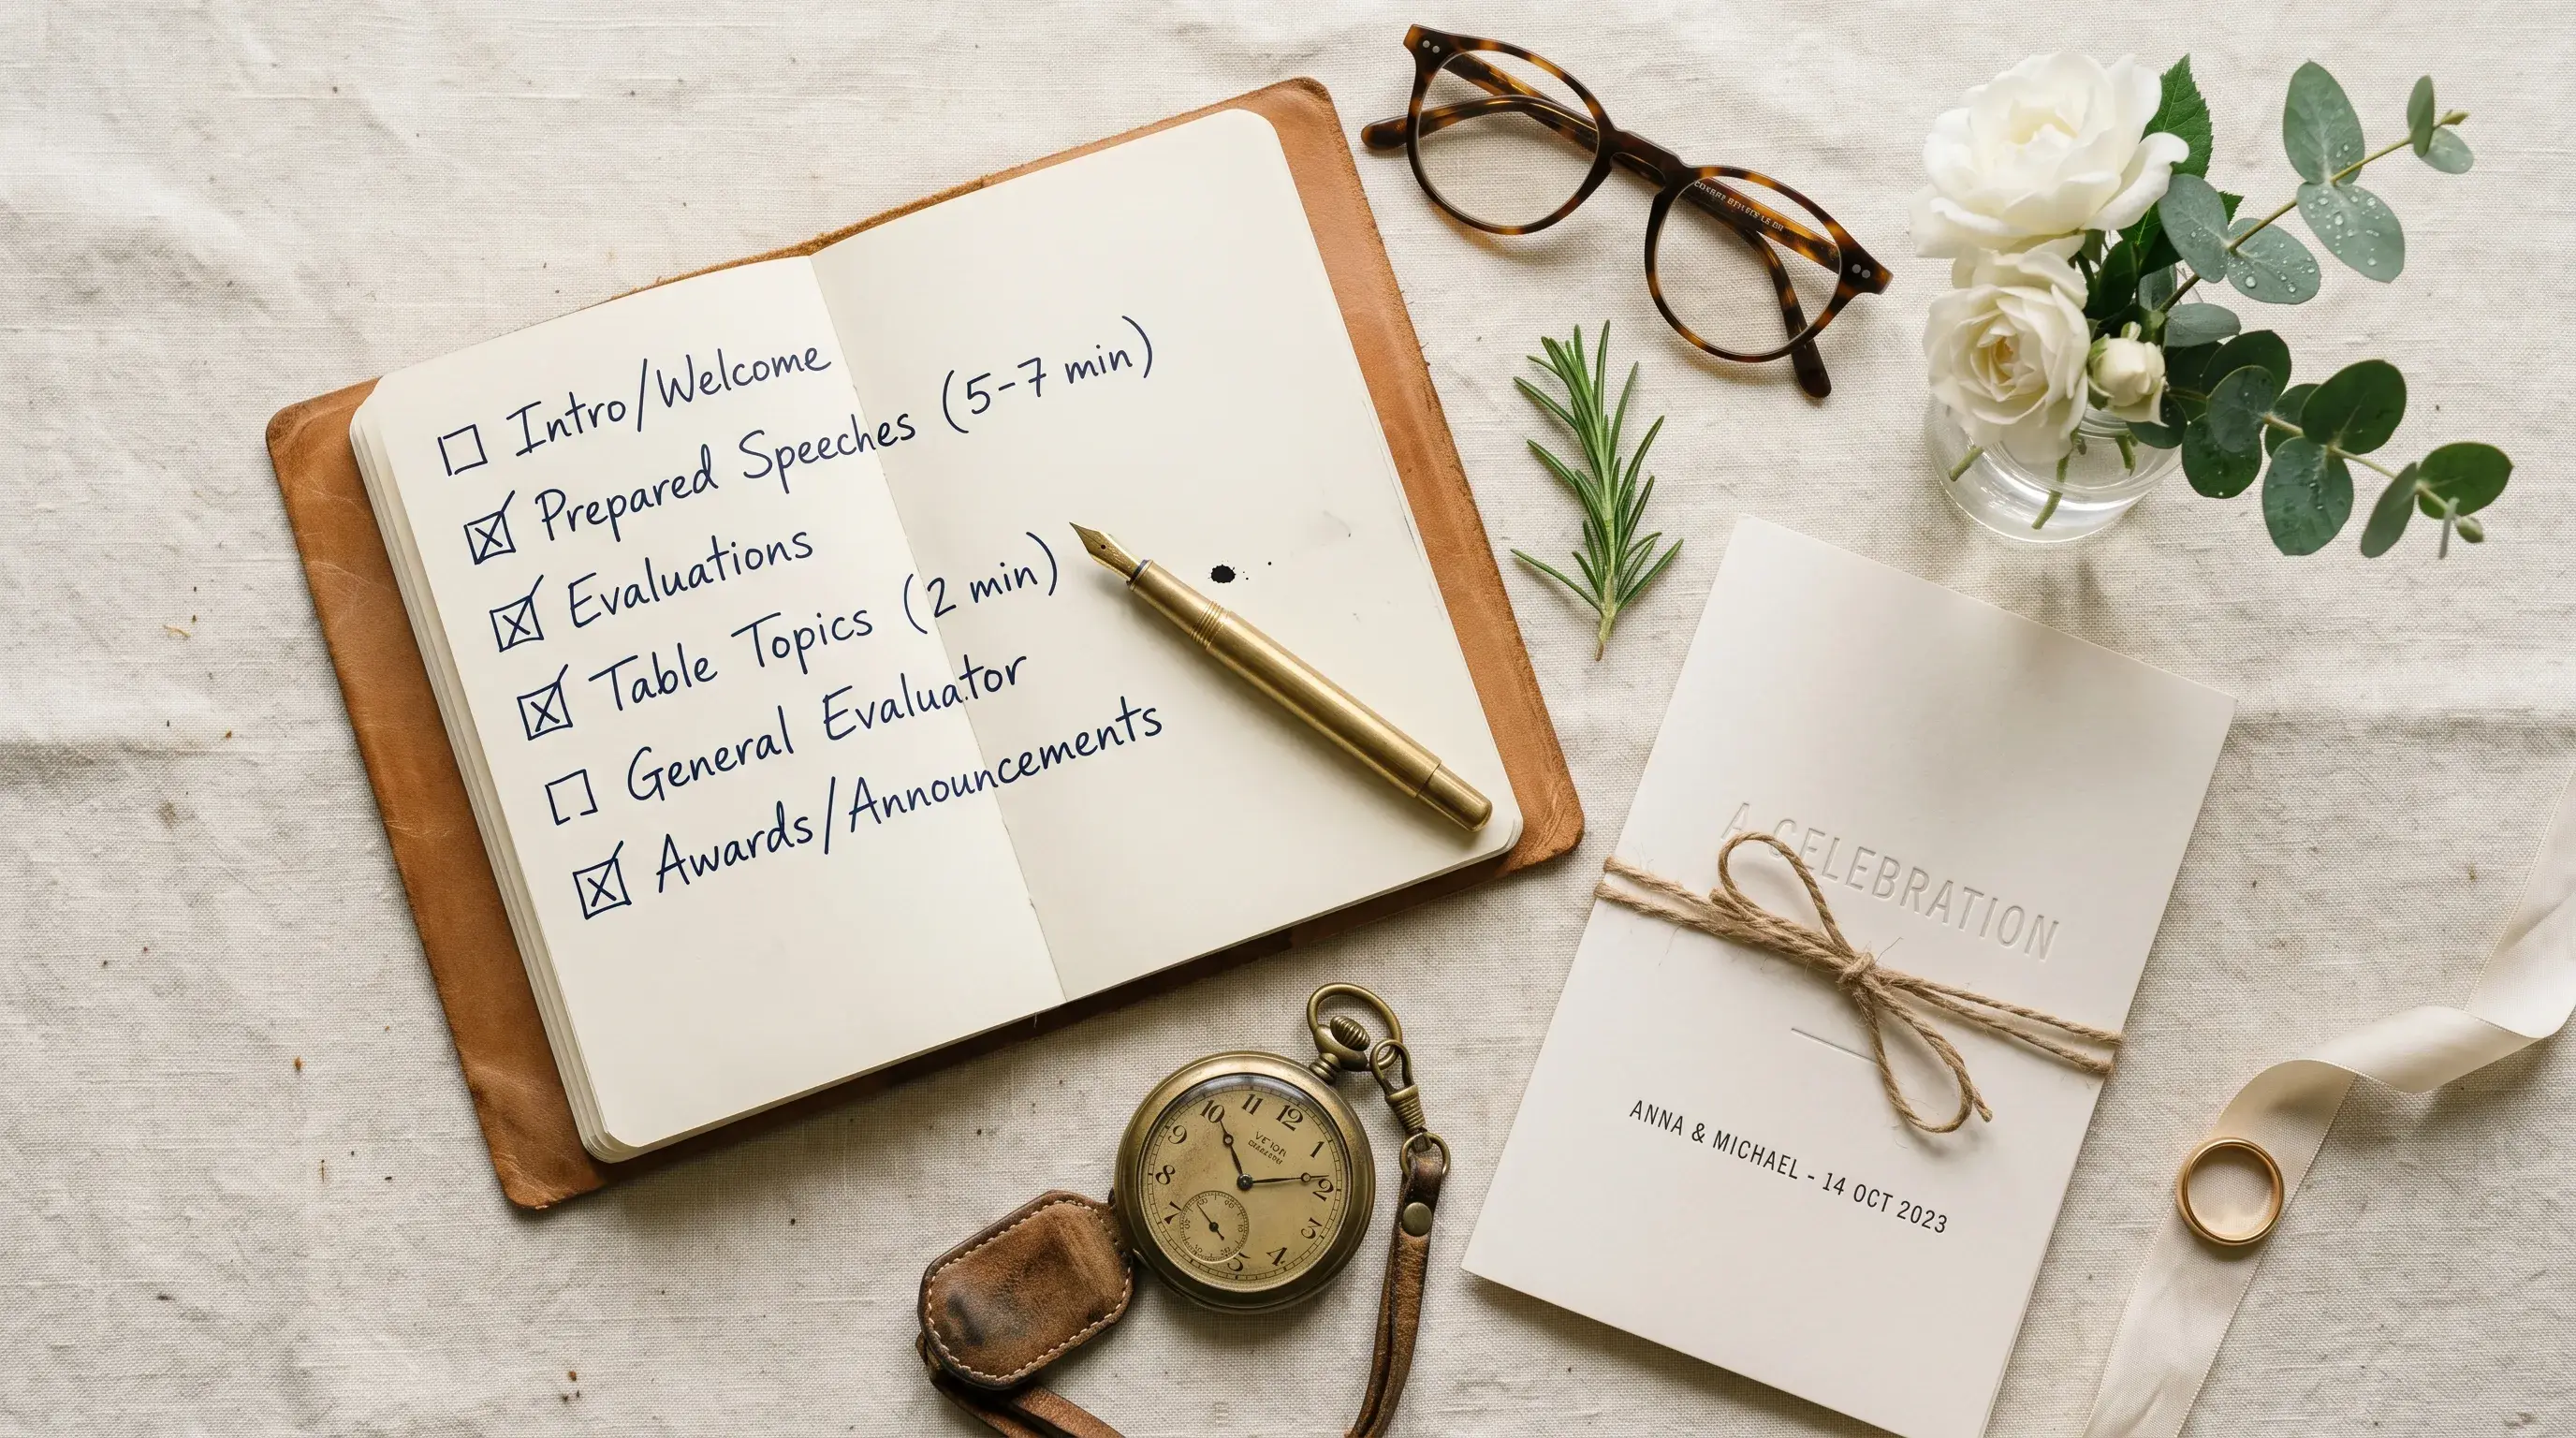 ☐ Intro/Welcome
☒ Prepared Speeches (5-7 min)
☒ Evaluations
☒ Table Topics (2 min)
☐ General Evaluator
☒ Awards/Announcements
A CELEBRATION
ANNA & MICHAEL - 14 OCT 2023
10 11 12
9 1
8 2
7 3
5 4